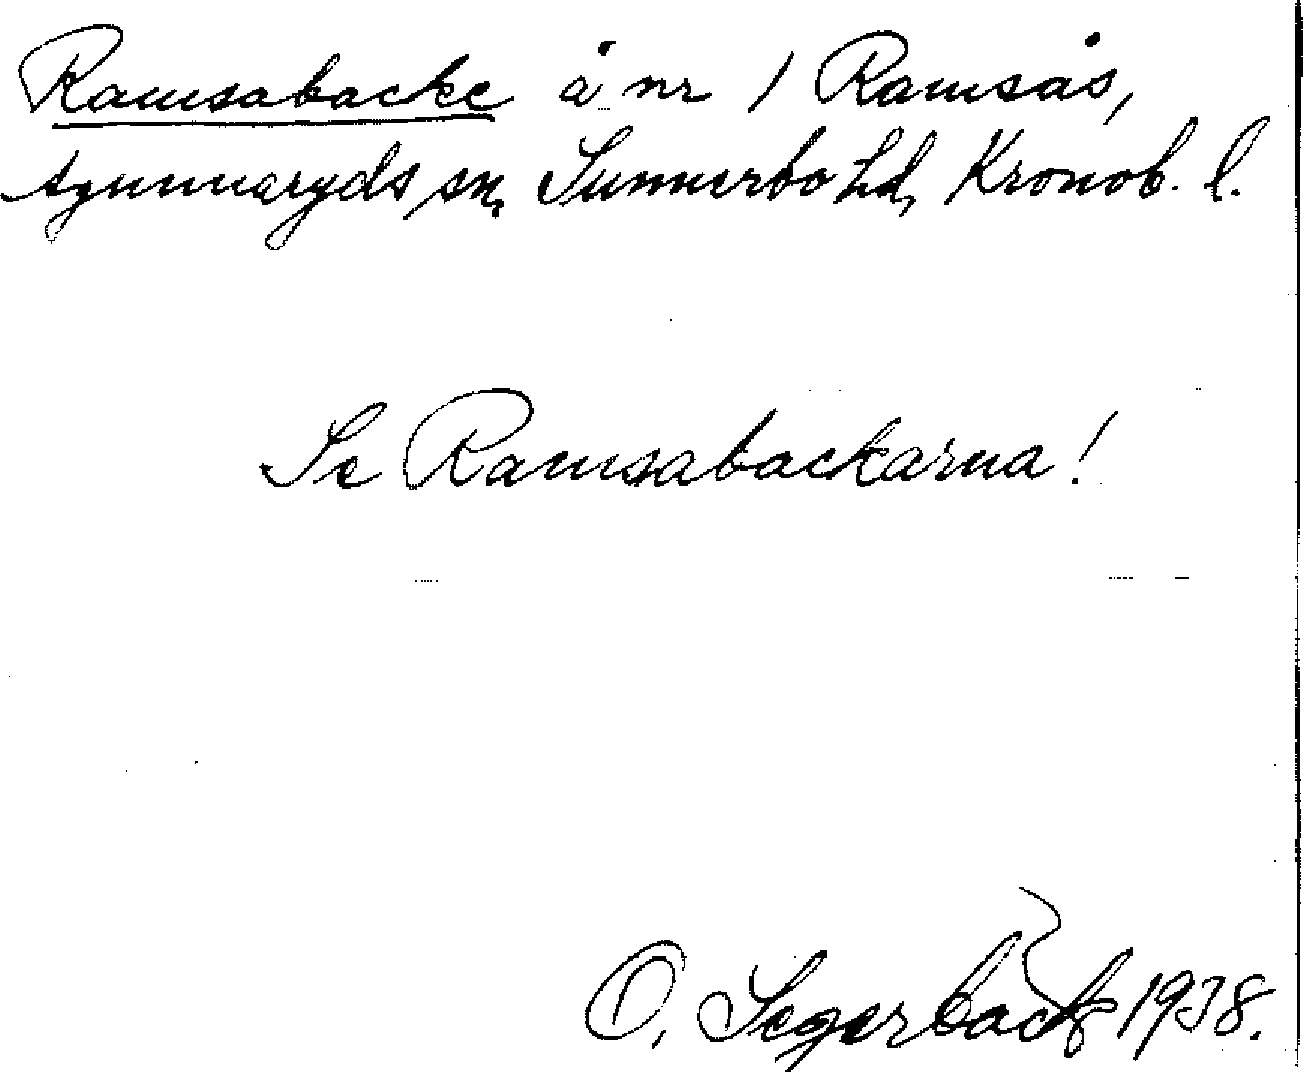 Ramsabacke å nr 1 Ramsås,
Agunnaryds sn, Sunnerbo hd, Kronob. l.
Se Ramsabackarna!
O. Segerbäck 1938.